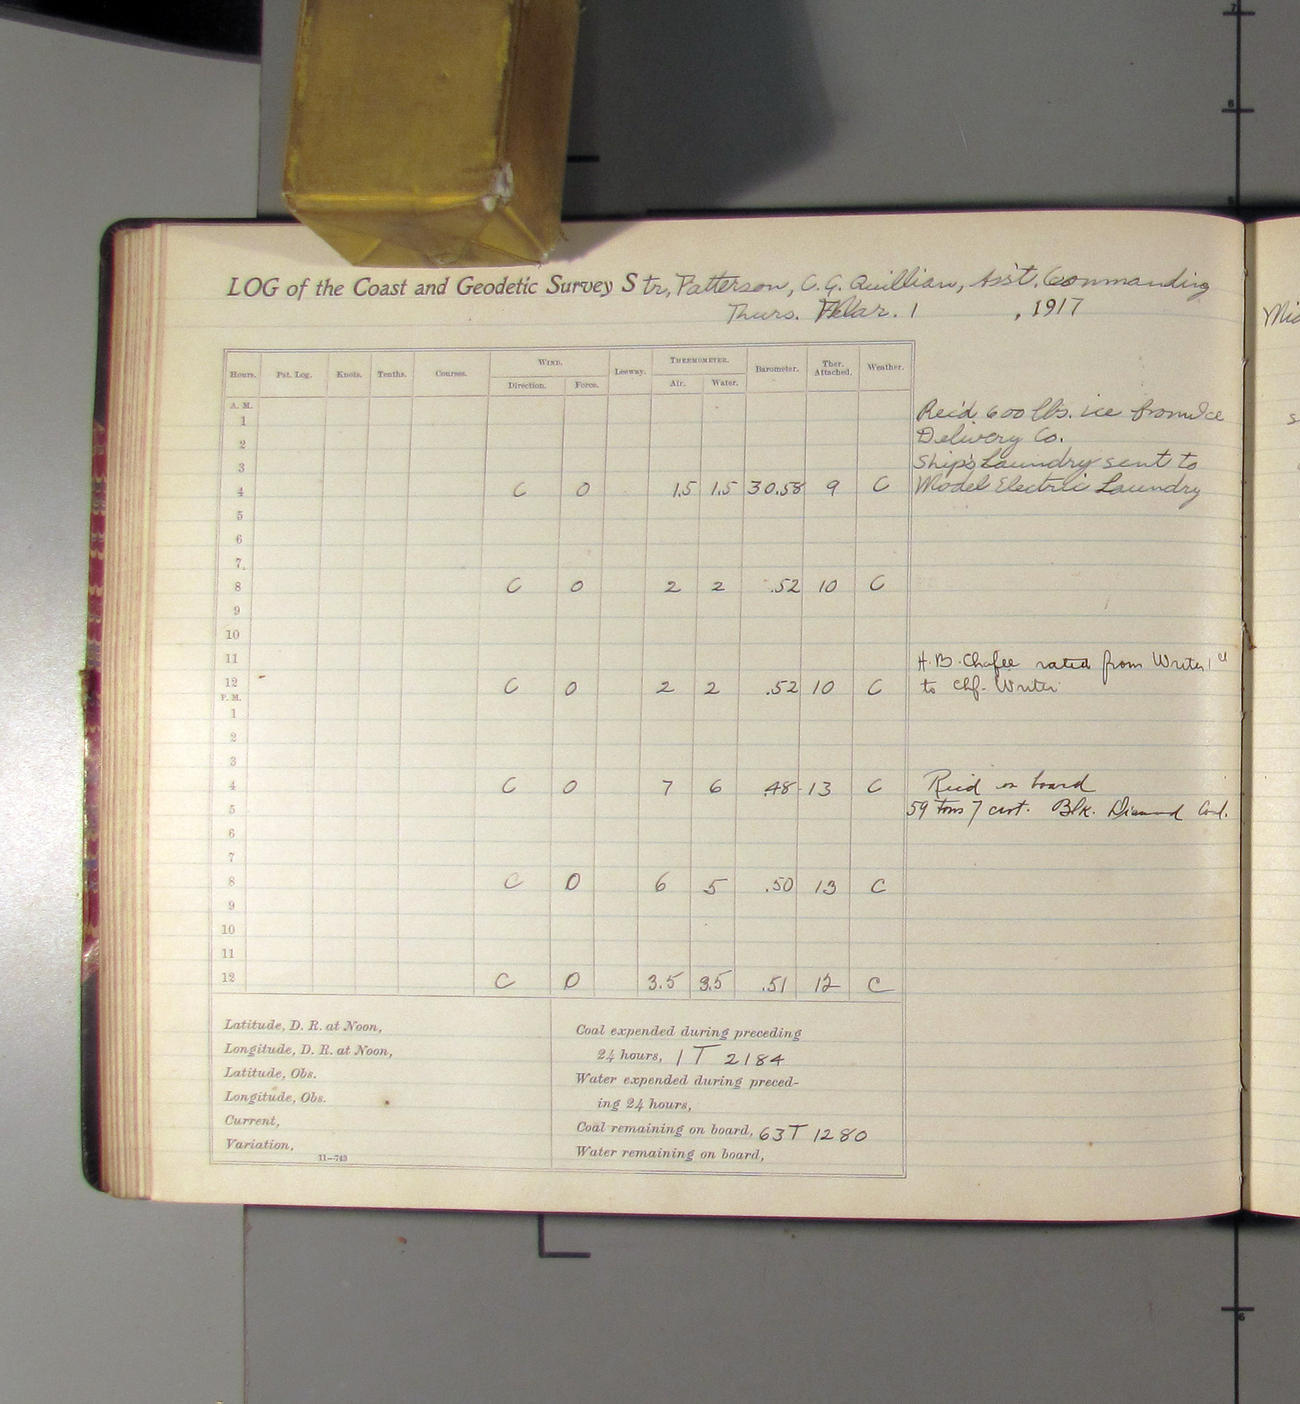 LOG of the Coast and Geodetic Survey Str, Patterson, C. G. Quillian, Ass't. Commanding
Thurs. Mar. 1 , 1917
Hours. Pat. Log. Knots. Tenths. Courses. WIND. Direction. Force. Leeway. THERMOMETER. Air. Water. Barometer. Ther. Attached. Weather.
A. M.
1 Rec'd 600 lbs. ice from Ice
2 Delivery Co.
3 Ship's Laundry sent to
4 C 0 1.5 1.5 30.58 9 C Model Electric Laundry
5
6
7.
8 C 0 2 2 .52 10 C
9
10
11 H. B. Chafee rated from Writer 1
12 C 0 2 2 .52 10 C to Chf. Writer
P. M.
1
2
3
4 C 0 7 6 .48 13 C Rec'd on board
5 59 tons 7 cwt. Blk. Diamond Coal.
6
7
8 C 0 6 5 .50 13 C
9
10
11
12 C 0 3.5 3.5 .51 12 C
Latitude, D. R. at Noon,
Longitude, D. R. at Noon,
Latitude, Obs.
Longitude, Obs.
Current,
Variation,
11—743
Coal expended during preceding
24 hours, 1 T 2184
Water expended during preced-
ing 24 hours,
Coal remaining on board, 63T 1280
Water remaining on board,